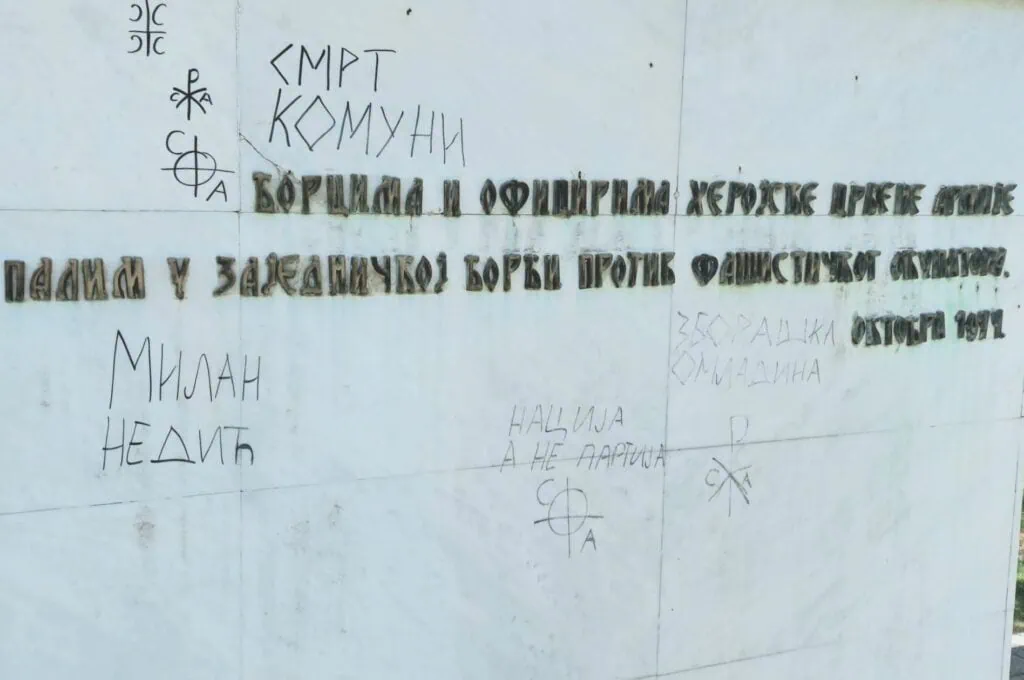 С С
С С
Р
С А
С
А
СМРТ
КОМУНИ
БОРЦИМА И ОФИЦИРИМА ХЕРОЈСКЕ ЦРВЕНЕ АРМИЈЕ
ПАЛИМ У ЗАЈЕДНИЧКОЈ БОРБИ ПРОТИВ ФАШИСТИЧКОГ ОКУПАТОРА.
ОКТОБРА 1944.
МИЛАН
НЕДИЋ
ЗБОРАШКА
ОМЛАДИНА
НАЦИЈА
А НЕ ПАРТИЈА
С
А
Р
С А